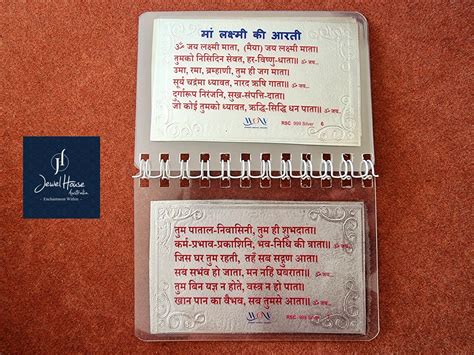 मां लक्ष्मी की आरती
ॐ जय लक्ष्मी माता, (मैया) जय लक्ष्मी माता।
तुमको निसिदिन सेवत, हर-विष्णु-धाता॥ ॐ जय...
उमा, रमा, ब्रम्हाणी, तुम ही जग माता।
सूर्य चन्द्रमा ध्यावत, नारद ऋषि गाता॥ ॐ जय...
दुर्गारूप निरंजनि, सुख-संपत्ति-दाता।
जो कोई तुमको ध्यावत, ऋद्धि-सिद्धि धन पाता॥ ॐ जय...
RSC 999 Silver 6
JH
Jewel House
Australia
Enchantment Within
तुम पाताल-निवासिनी, तुम ही शुभदाता।
कर्म-प्रभाव-प्रकाशिनि, भव-निधि की त्राता॥ ॐ जय...
जिस घर तुम रहती, तहँ सब सद्गुण आता।
सब सभंव हो जाता, मन नहिं घबराता॥ ॐ जय...
तुम बिन यज्ञ न होते, वस्त्र न हो पाता।
खान पान का वैभव, सब तुमसे आता॥ ॐ जय...
RSC 999 Silver